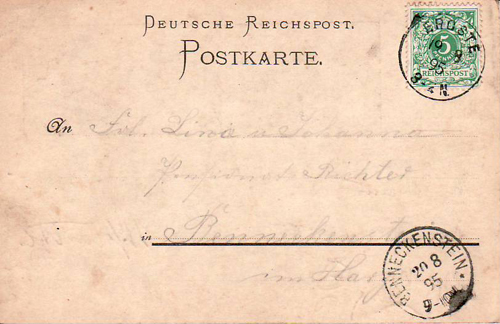 DEUTSCHE REICHSPOST.
POSTKARTE.
5
REICHSPOST
19 8
95
8-9 N.
An Frl. Lina u. Johanna
Pensionat Richter
in Benneckenstein
im Harz
BENNECKENSTEIN
20 8
95